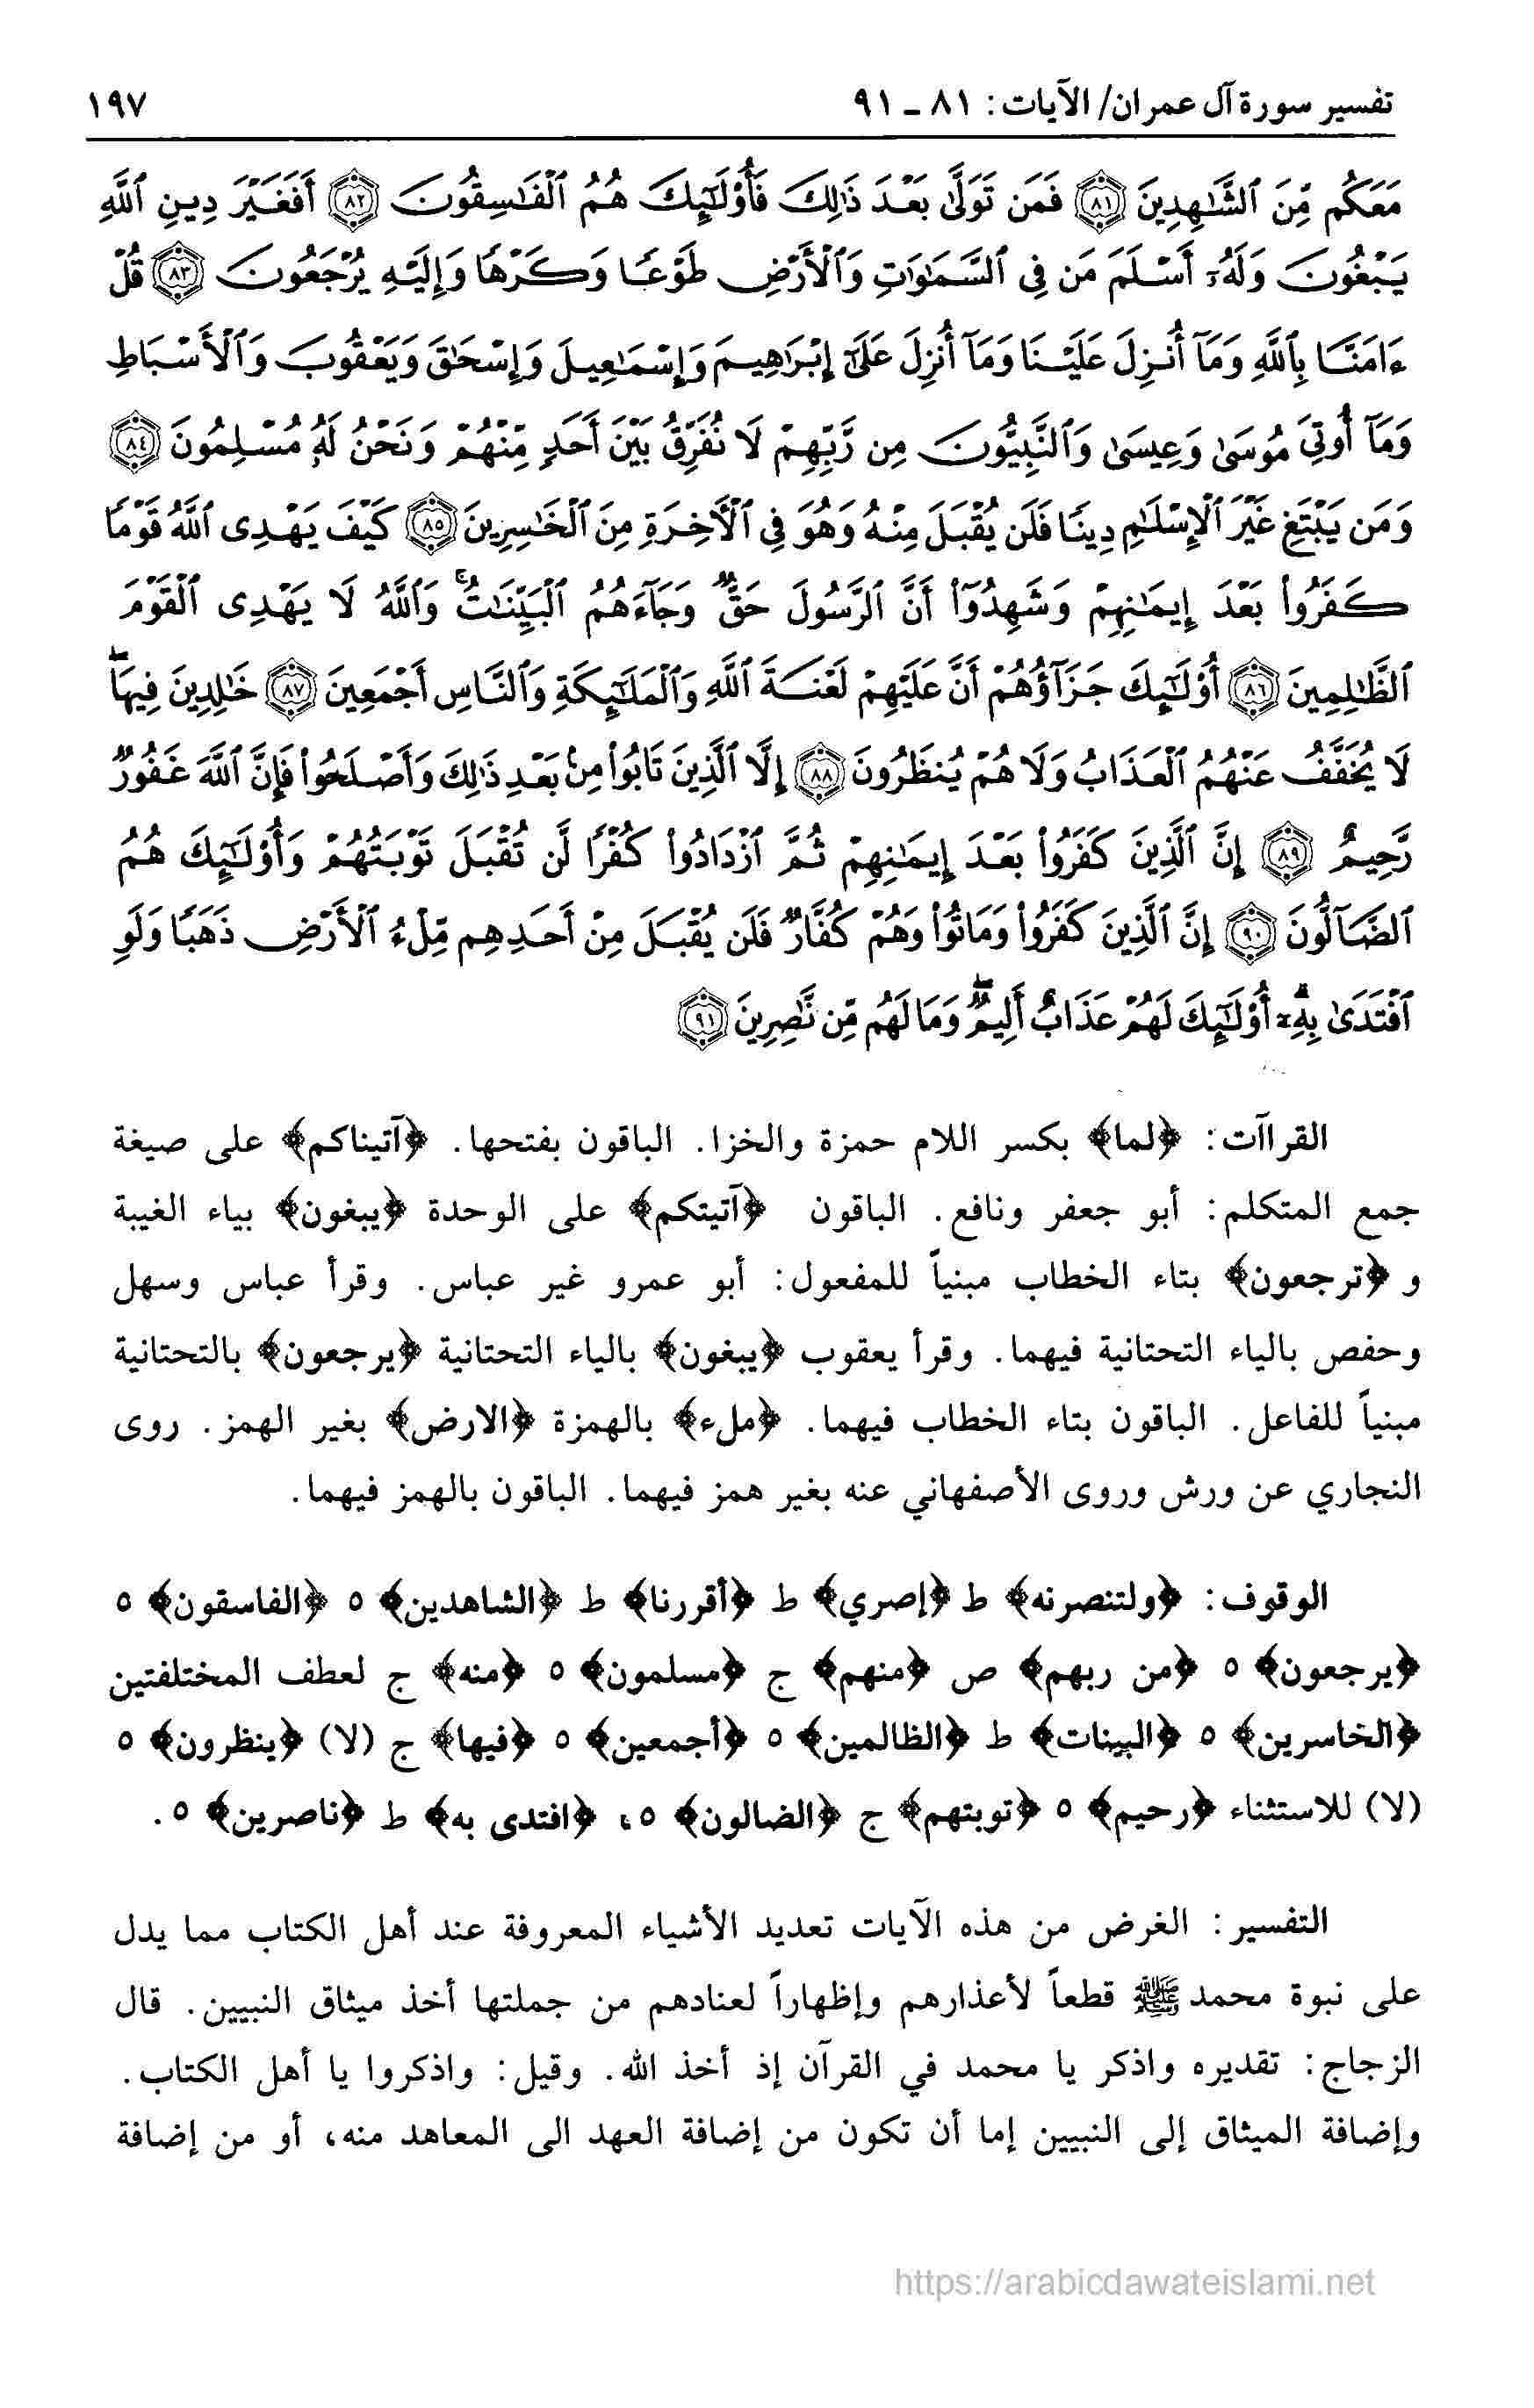 تفسير سورة آل عمران/ الآيات: ٨١ ـ ٩١ ١٩٧
مَعَكُم مِّنَ ٱلشَّٰهِدِينَ ٨١ فَمَن تَوَلَّىٰ بَعْدَ ذَٰلِكَ فَأُو۟لَٰٓئِكَ هُمُ ٱلْفَٰسِقُونَ ٨٢ أَفَغَيْرَ دِينِ ٱللَّهِ
يَبْغُونَ وَلَهُۥٓ أَسْلَمَ مَن فِى ٱلسَّمَٰوَٰتِ وَٱلْأَرْضِ طَوْعًا وَكَرْهًا وَإِلَيْهِ يُرْجَعُونَ ٨٣ قُلْ
ءَامَنَّا بِٱللَّهِ وَمَآ أُنزِلَ عَلَيْنَا وَمَآ أُنزِلَ عَلَىٰٓ إِبْرَٰهِيمَ وَإِسْمَٰعِيلَ وَإِسْحَٰقَ وَيَعْقُوبَ وَٱلْأَسْبَاطِ
وَمَآ أُوتِىَ مُوسَىٰ وَعِيسَىٰ وَٱلنَّبِيُّونَ مِن رَّبِّهِمْ لَا نُفَرِّقُ بَيْنَ أَحَدٍ مِّنْهُمْ وَنَحْنُ لَهُۥ مُسْلِمُونَ ٨٤
وَمَن يَبْتَغِ غَيْرَ ٱلْإِسْلَٰمِ دِينًا فَلَن يُقْبَلَ مِنْهُ وَهُوَ فِى ٱلْءَاخِرَةِ مِنَ ٱلْخَٰسِرِينَ ٨٥ كَيْفَ يَهْدِى ٱللَّهُ قَوْمًا
كَفَرُوا۟ بَعْدَ إِيمَٰنِهِمْ وَشَهِدُوٓا۟ أَنَّ ٱلرَّسُولَ حَقٌّ وَجَآءَهُمُ ٱلْبَيِّنَٰتُ ۚ وَٱللَّهُ لَا يَهْدِى ٱلْقَوْمَ
ٱلظَّٰلِمِينَ ٨٦ أُو۟لَٰٓئِكَ جَزَآؤُهُمْ أَنَّ عَلَيْهِمْ لَعْنَةَ ٱللَّهِ وَٱلْمَلَٰٓئِكَةِ وَٱلنَّاسِ أَجْمَعِينَ ٨٧ خَٰلِدِينَ فِيهَا ۖ
لَا يُخَفَّفُ عَنْهُمُ ٱلْعَذَابُ وَلَا هُمْ يُنظَرُونَ ٨٨ إِلَّا ٱلَّذِينَ تَابُوا۟ مِنۢ بَعْدِ ذَٰلِكَ وَأَصْلَحُوا۟ فَإِنَّ ٱللَّهَ غَفُورٌ
رَّحِيمٌ ٨٩ إِنَّ ٱلَّذِينَ كَفَرُوا۟ بَعْدَ إِيمَٰنِهِمْ ثُمَّ ٱزْدَادُوا۟ كُفْرًا لَّن تُقْبَلَ تَوْبَتُهُمْ وَأُو۟لَٰٓئِكَ هُمُ
ٱلضَّآلُّونَ ٩٠ إِنَّ ٱلَّذِينَ كَفَرُوا۟ وَمَاتُوا۟ وَهُمْ كُفَّارٌ فَلَن يُقْبَلَ مِنْ أَحَدِهِم مِّلْءُ ٱلْأَرْضِ ذَهَبًا وَلَوِ
ٱفْتَدَىٰ بِهِۦٓ ۗ أُو۟لَٰٓئِكَ لَهُمْ عَذَابٌ أَلِيمٌ ۖ وَمَا لَهُم مِّن نَّٰصِرِينَ ٩١
القراآت: ﴿لما﴾ بكسر اللام حمزة والخزا. الباقون بفتحها. ﴿آتيناكم﴾ على صيغة
جمع المتكلم: أبو جعفر ونافع. الباقون ﴿آتيتكم﴾ على الوحدة ﴿يبغون﴾ بياء الغيبة
و ﴿ترجعون﴾ بتاء الخطاب مبنياً للمفعول: أبو عمرو غير عباس. وقرأ عباس وسهل
وحفص بالياء التحتانية فيهما. وقرأ يعقوب ﴿يبغون﴾ بالياء التحتانية ﴿يرجعون﴾ بالتحتانية
مبنياً للفاعل. الباقون بتاء الخطاب فيهما. ﴿ملء﴾ بالهمزة ﴿الارض﴾ بغير الهمز. روى
النجاري عن ورش وروى الأصفهاني عنه بغير همز فيهما. الباقون بالهمز فيهما.
الوقوف: ﴿ولتنصرنه﴾ ط ﴿إصري﴾ ط ﴿أقررنا﴾ ط ﴿الشاهدين﴾ ٥ ﴿الفاسقون﴾ ٥
﴿يرجعون﴾ ٥ ﴿من ربهم﴾ ص ﴿منهم﴾ ج ﴿مسلمون﴾ ٥ ﴿منه﴾ ج لعطف المختلفتين
﴿الخاسرين﴾ ٥ ﴿البينات﴾ ط ﴿الظالمين﴾ ٥ ﴿أجمعين﴾ ٥ ﴿فيها﴾ ج (لا) ﴿ينظرون﴾ ٥
(لا) للاستثناء ﴿رحيم﴾ ٥ ﴿توبتهم﴾ ج ﴿الضالون﴾ ٥، ﴿افتدى به﴾ ط ﴿ناصرين﴾ ٥.
التفسير: الغرض من هذه الآيات تعديد الأشياء المعروفة عند أهل الكتاب مما يدل
على نبوة محمد ﷺ قطعاً لأعذارهم وإظهاراً لعنادهم من جملتها أخذ ميثاق النبيين. قال
الزجاج: تقديره واذكر يا محمد في القرآن إذ أخذ الله. وقيل: واذكروا يا أهل الكتاب.
وإضافة الميثاق إلى النبيين إما أن تكون من إضافة العهد الى المعاهد منه، أو من إضافة
https://arabicdawateislami.net